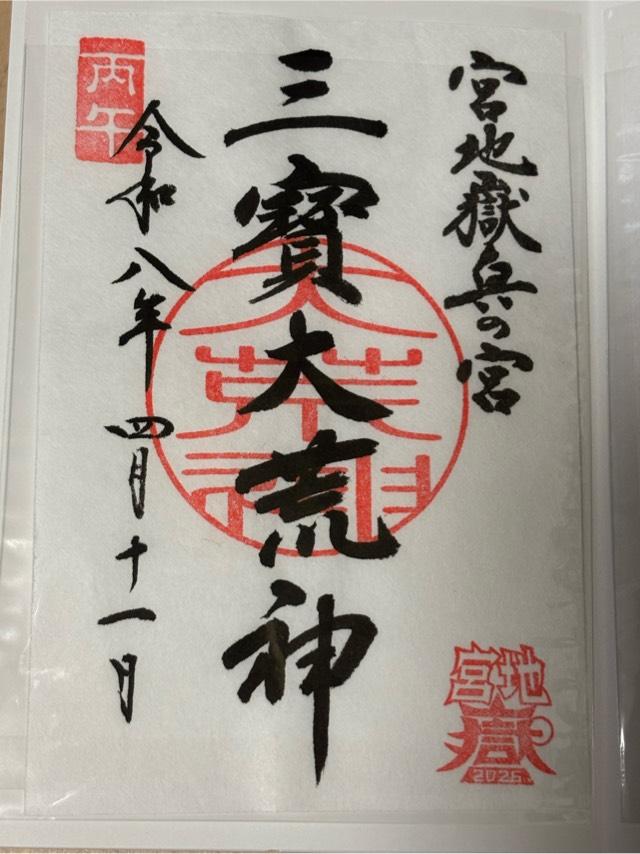 宮地嶽奥の宮
三寳大荒神
令和八年四月十一日
丙午
大
荒神
宮地
嶽